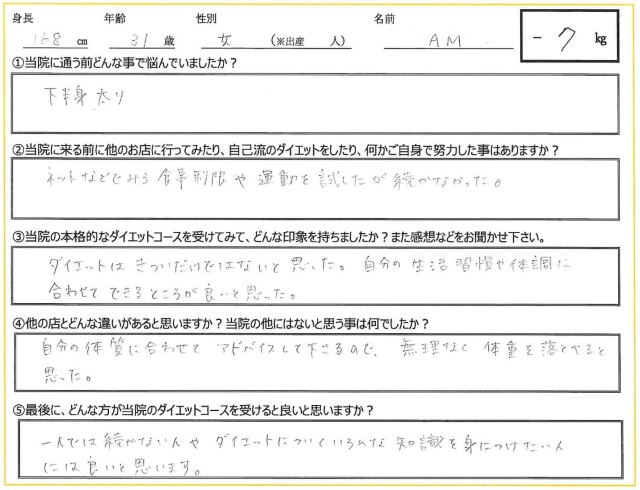 身長 年齢 性別 名前
168 cm 31 歳 女 (※出産 人) AM -7 kg
①当院に通う前どんな事で悩んでいましたか？
下半身太り
②当院に来る前に他のお店に行ってみたり、自己流のダイエットをしたり、何かご自身で努力した事はありますか？
ネットなどでみる食事制限や運動を試したが続かなかった。
③当院の本格的なダイエットコースを受けてみて、どんな印象を持ちましたか？また感想などをお聞かせ下さい。
ダイエットはきついだけではないと思った。自分の生活習慣や体調に
合わせてできるところが良いと思った。
④他の店とどんな違いがあると思いますか？当院の他にはないと思う事は何でしたか？
自分の体質に合わせてアドバイスして下さるので、無理なく体重を落とせると
思った。
⑤最後に、どんな方が当院のダイエットコースを受けると良いと思いますか？
一人では続かない人やダイエットについていろんな知識を身につけたい人
には良いと思います。